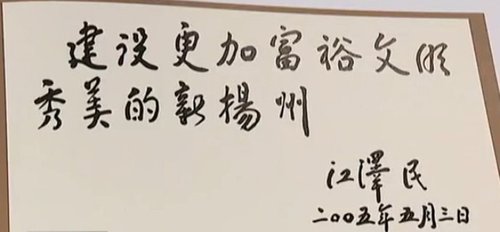 建设更加富裕文明
秀美的新揚州
江澤民
二00五年五月三日